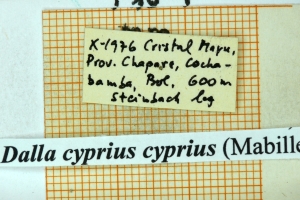 X-1976 Cristal Mayu,
Prov. Chapare, Cocha-
bamba, Bol, 600m
Steinbach leg
Dalla cyprius cyprius (Mabille